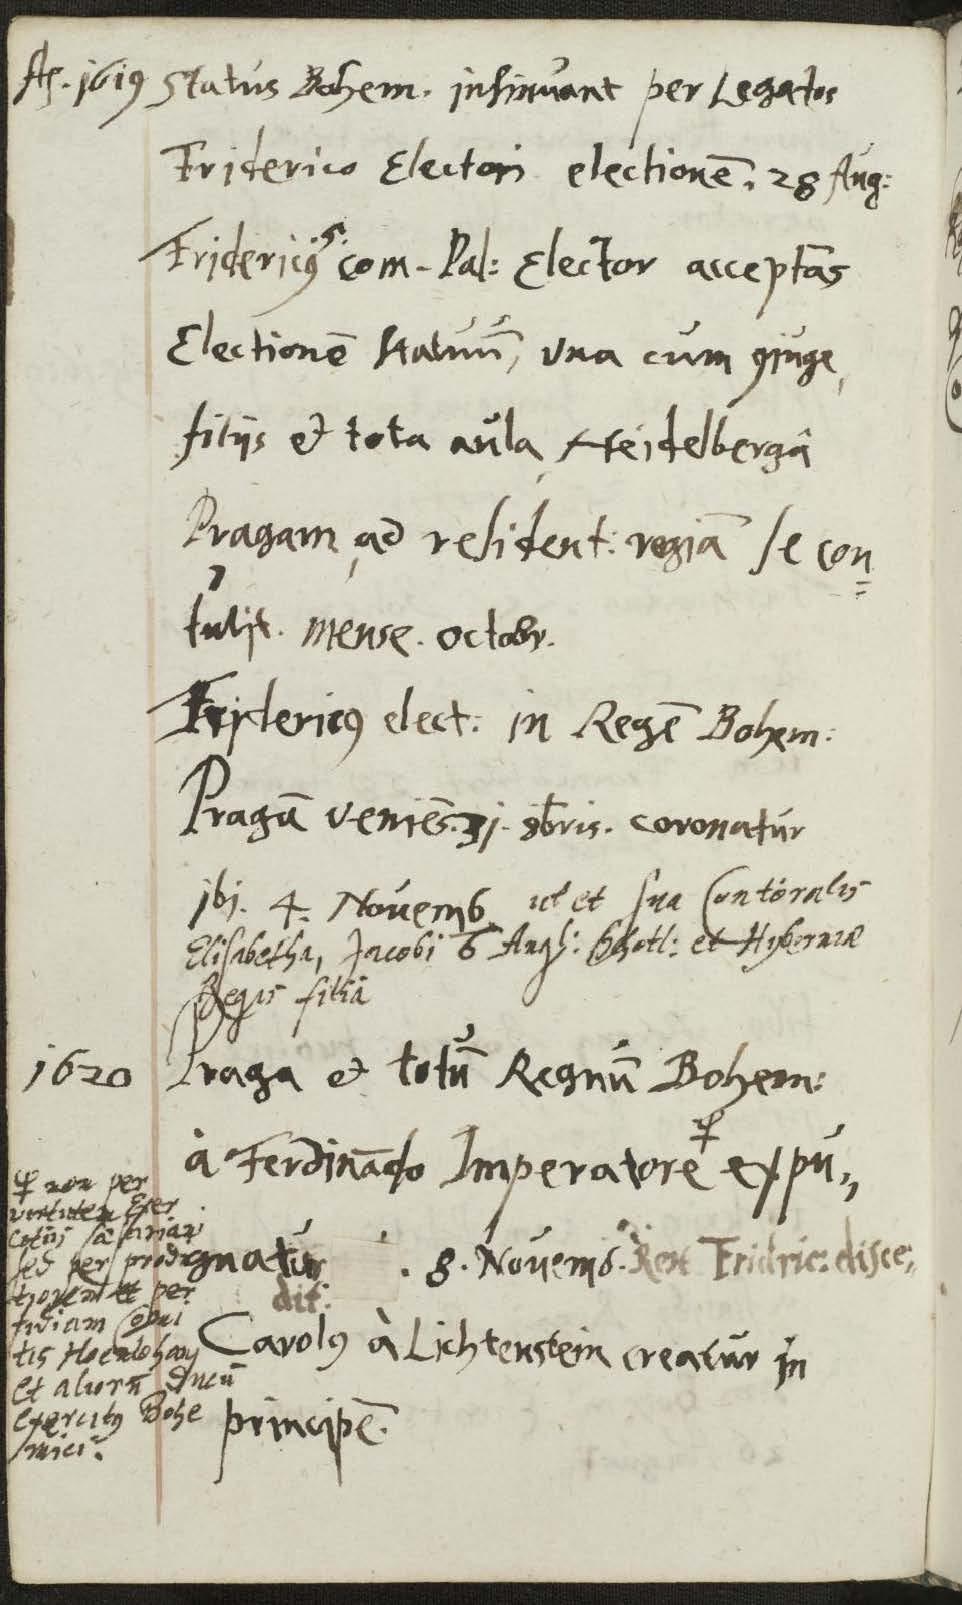 Aº. 1619 Status Bohem. insinuant per Legatos
Friderico Electori electionē. 28 Aug:
Fridericꝰ 5. Com. Pal: Elector acceptās
Electionē Statuū, una cum ꝯiuge,
filijs et tota aula, Heidelbergâ
Pragam, ad resident: regiā se con=
tulit. mense. octobr.
Fridericꝰ elect: in Regē Bohem:
Pragā veniēs. 31. 8bris. coronatur
ibi. 4. Novemb. ut et sua Contoralis
Elisabetha, Jacobi 6 Angl: Schotl: et Hyberniæ
Regis filia
1620 Praga et totū Regnū Bohem:
à Ferdinādo Imperatore expu„
gnatur . 8. Novemb. Rex Fridric: disce„
dit:
Carolꝰ à Lichtenstein creatur in
principē.
non per
virtutem Exer
citus Cæsariani
sed per prodi
tionem et per
fidiam Comi
tis Hoenlohany
et aliorū Ducū
exercitꝰ Bohe
mici.